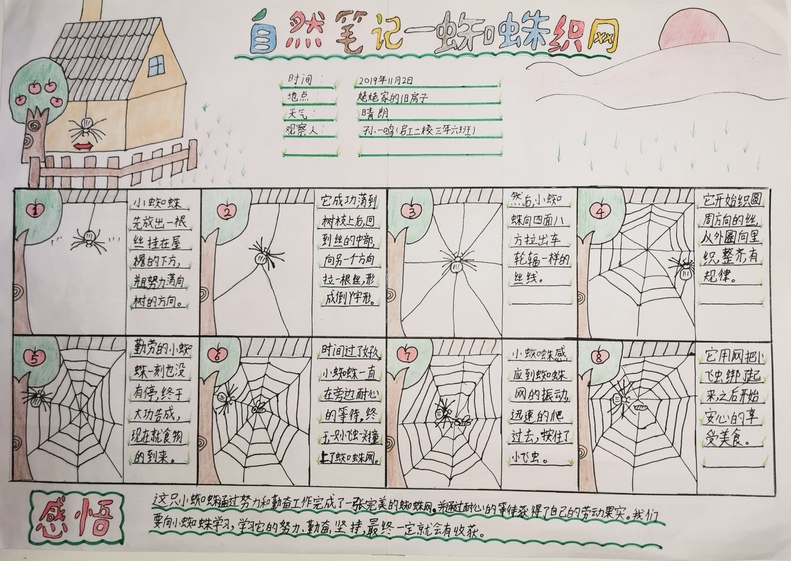 自然笔记—蜘蛛织网
时间：
2019年11月2日
地点：
姥姥家的旧房子
天气：
晴朗
观察人：
孙一鸣(昌工二校三年六班)
1
小蜘蛛
先放出一根
丝挂在屋
檐的下方，
并努力荡向
树的方向。
2
它成功荡到
树枝上后,回
到丝的中部,
向另一个方向
拉一根丝,形
成倒Y字形。
3
然后,小蜘
蛛向四面八
方拉出车
轮辐一样的
丝线。
4
它开始织圆
周方向的丝,
从外圈向里
织,整齐,有
规律。
5
勤劳的小蜘
蛛一刻也没
有停,终于
大功告成,
现在就食物
的到来。
6
时间过了好久
小蜘蛛一直
在旁边耐心
的等待,终
于一次小虫飞撞
上了蜘蛛网。
7
小蜘蛛感
应到蜘蛛
网的振动,
迅速的爬
过去,按住了
小飞虫。
8
它用网把小
飞虫绑了起
来,之后开始
安心的享
受美食。
感悟
这只小蜘蛛通过努力和勤奋工作完成了一张完美的蜘蛛网,并通过耐心的等待获得了自己的劳动果实。我们
要向小蜘蛛学习,学习它的努力、勤奋、坚持,最终一定就会有收获。